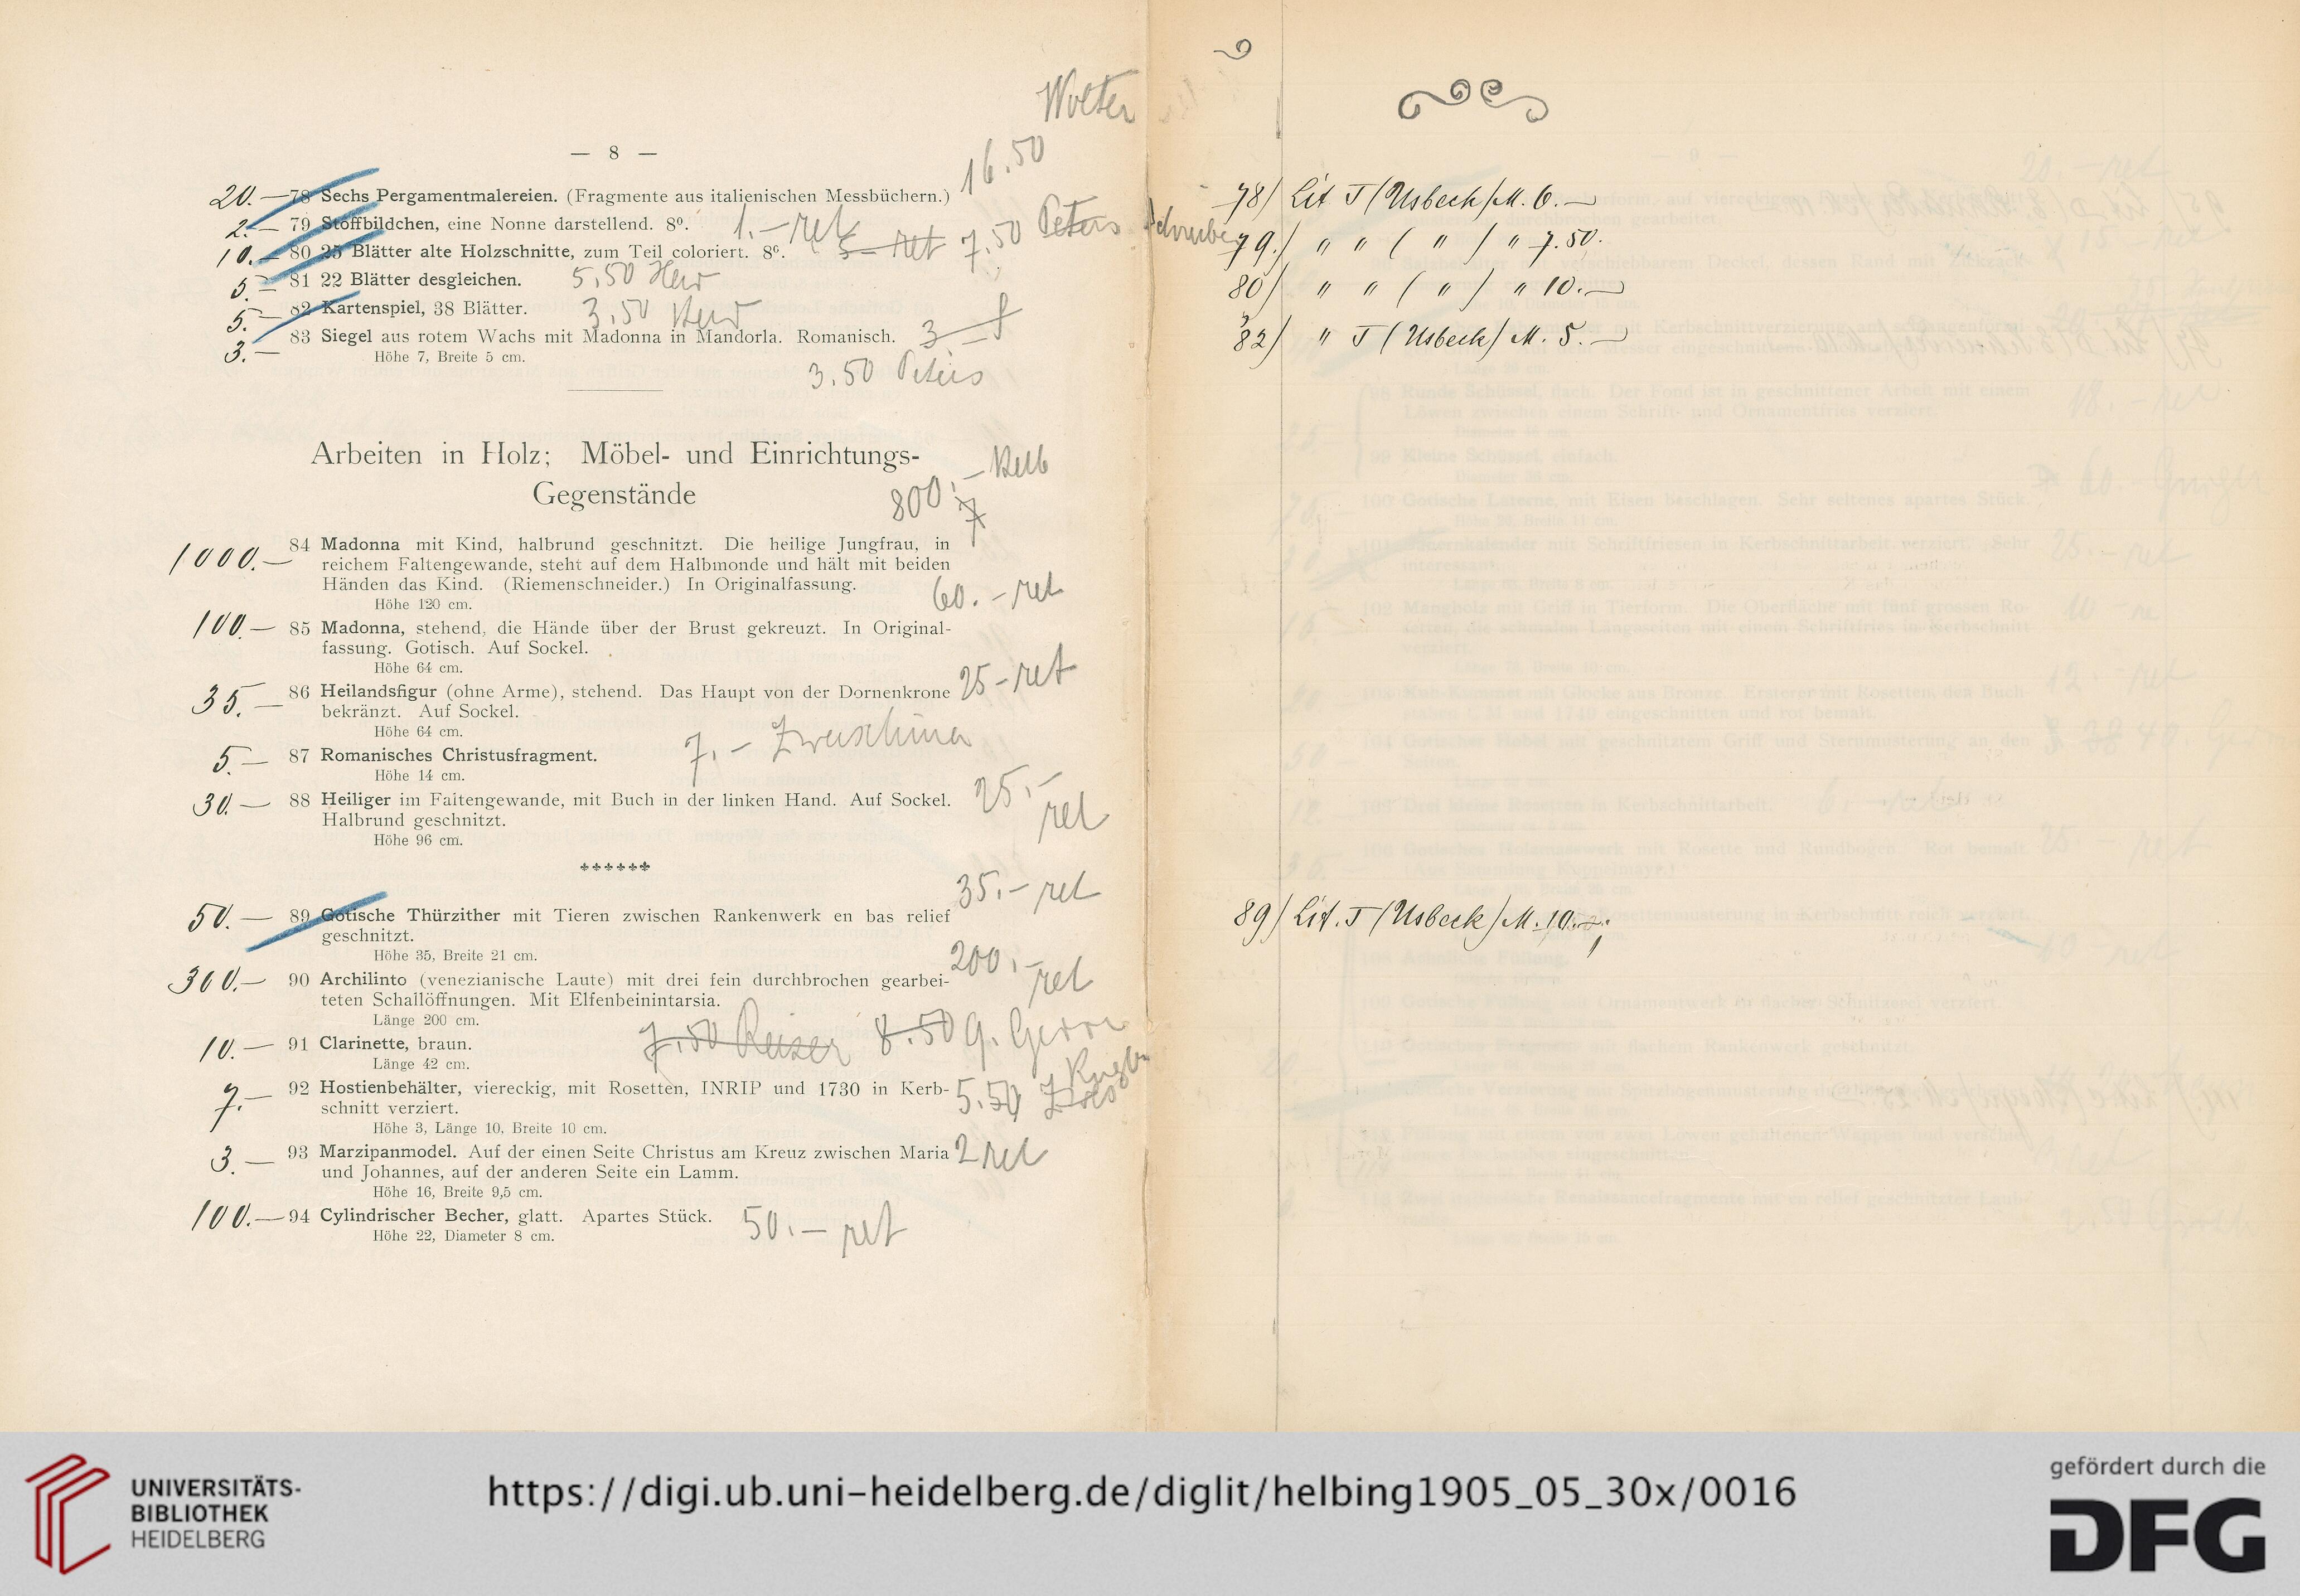 Wolter
— 8 —
16.50
20.— 78 Sechs Pergamentmalereien. (Fragmente aus italienischen Messbüchern.)
2.— 79 Stoffbildchen, eine Nonne darstellend. 8⁰. 1.— ret
10.— 80 25 Blätter alte Holzschnitte, zum Teil coloriert. 8⁰. 5 — ret 7.50 Peters
5.— 81 22 Blätter desgleichen. 5.50
5.— 82 Kartenspiel, 38 Blätter. 3.50
3.— 83 Siegel aus rotem Wachs mit Madonna in Mandorla. Romanisch. 3
Höhe 7, Breite 5 cm.
3.50 Peters
Arbeiten in Holz; Möbel- und Einrichtungs-
Gegenstände
800.—
1000.— 84 Madonna mit Kind, halbrund geschnitzt. Die heilige Jungfrau, in
reichem Faltengewande, steht auf dem Halbmonde und hält mit beiden
Händen das Kind. (Riemenschneider.) In Originalfassung.
Höhe 120 cm.
60.— ret
100.— 85 Madonna, stehend, die Hände über der Brust gekreuzt. In Original-
fassung. Gotisch. Auf Sockel.
Höhe 64 cm.
35.— 86 Heilandsfigur (ohne Arme), stehend. Das Haupt von der Dornenkrone 25 — ret
bekränzt. Auf Sockel.
Höhe 64 cm.
5.— 87 Romanisches Christusfragment. 7.—
Höhe 14 cm.
30.— 88 Heiliger im Faltengewande, mit Buch in der linken Hand. Auf Sockel. 25.— ret
Halbrund geschnitzt.
Höhe 96 cm.
35.— ret
50.— 89 Gotische Thürzither mit Tieren zwischen Rankenwerk en bas relief
geschnitzt.
Höhe 35, Breite 21 cm.
200.— ret
300.— 90 Archilinto (venezianische Laute) mit drei fein durchbrochen gearbei-
teten Schallöffnungen. Mit Elfenbeinintarsia.
Länge 200 cm.
10.— 91 Clarinette, braun. 7.50 Reiser 8.50 9.
Länge 42 cm.
7.— 92 Hostienbehälter, viereckig, mit Rosetten, INRIP und 1730 in Kerb- 5.50
schnitt verziert.
Höhe 3, Länge 10, Breite 10 cm.
3.— 93 Marzipanmodel. Auf der einen Seite Christus am Kreuz zwischen Maria 2 ret
und Johannes, auf der anderen Seite ein Lamm.
Höhe 16, Breite 9,5 cm.
100.— 94 Cylindrischer Becher, glatt. Apartes Stück. 50.— ret
Höhe 22, Diameter 8 cm.
78) Lit J (Usbeck) M. 6.—
79.) " " ( " ) " 7.50.
80) " " ( " ) " 10.—
82) " J (Usbeck) M. 5.—
89) Lit. J (Usbeck) M. 10.—
UNIVERSITÄTS-
BIBLIOTHEK
HEIDELBERG
https://digi.ub.uni-heidelberg.de/diglit/helbing1905_05_30x/0016
gefördert durch die
DFG